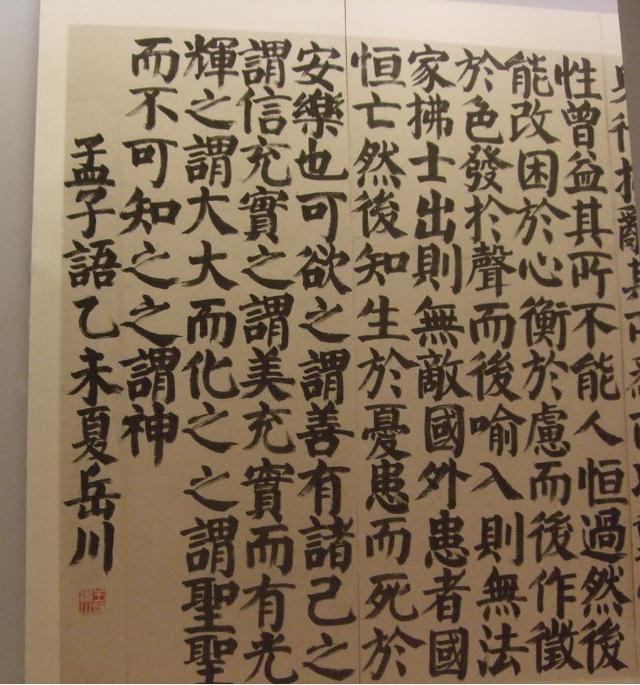 行拂亂其所為
性曾益其所不能人恒過然後
能改困於心衡於慮而後作徵
於色發於聲而後喻入則無法
家拂士出則無敵國外患者國
恒亡然後知生於憂患而死於
安樂也可欲之謂善有諸己之
謂信充實之謂美充實而有光
輝之謂大大而化之之謂聖聖
而不可知之之謂神
孟子語乙未夏岳川